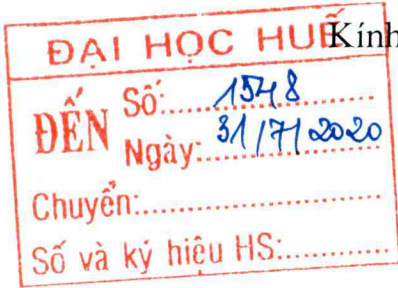 ĐẠI HỌC HUẾ Kính
ĐẾN Số:.....1548.....
Ngày:.....31/7/2020.....
Chuyển:.....
Số và ký hiệu HS:.....